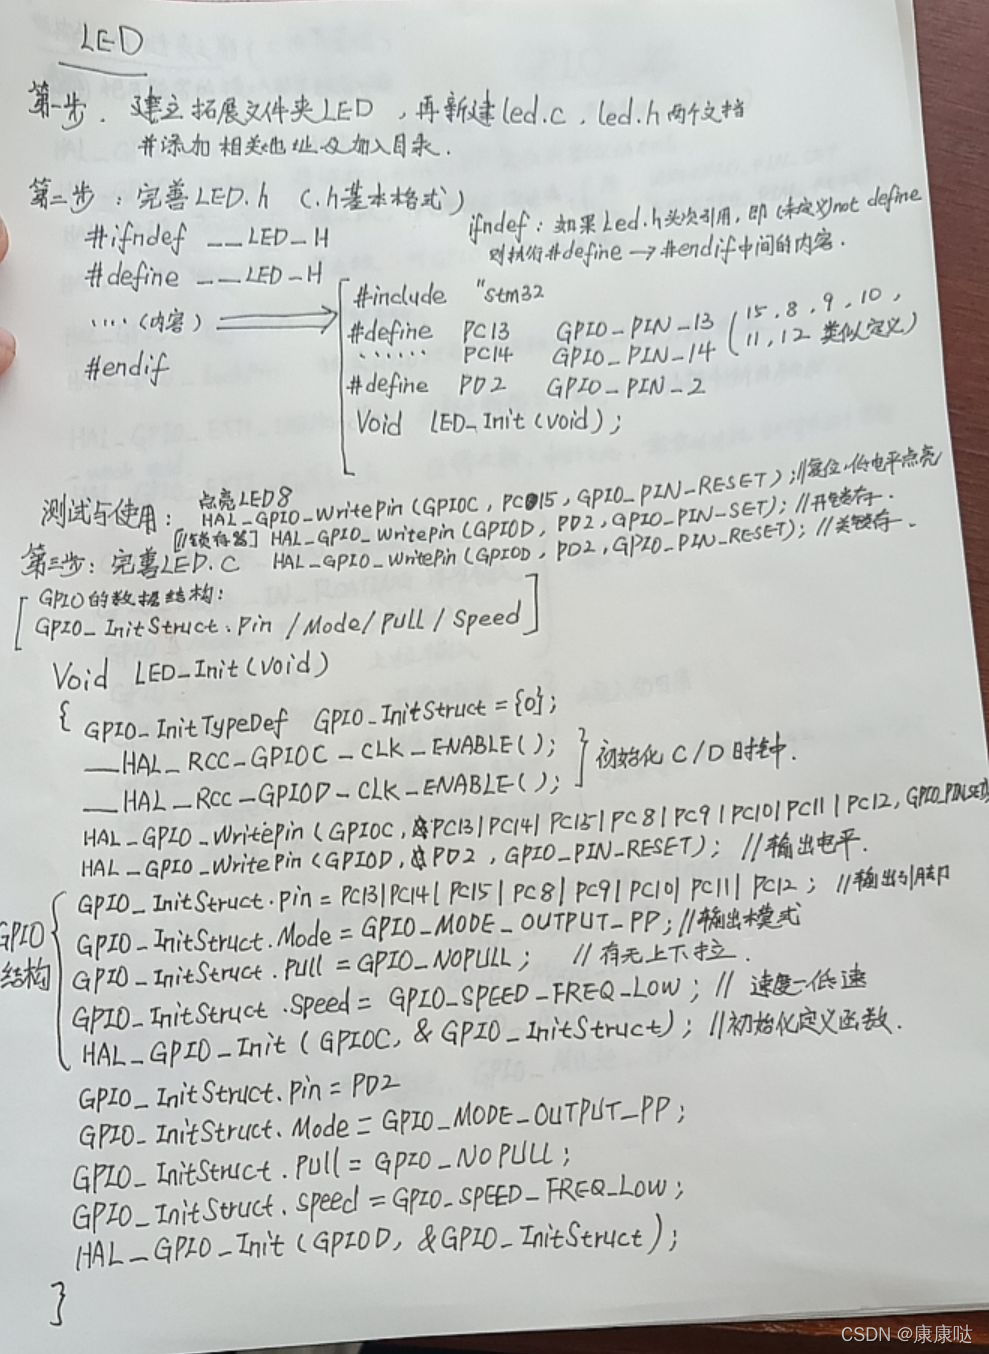 LED
第一步. 建立拓展文件夹LED ，再新建led.c，led.h两个文档
并添加相关地址及加入目录.
第二步：完善LED.h （.h基本格式）
ifndef：如果Led.h头次引用，即(未定义)not define
则执行#define → #endif中间的内容.
#ifndef __LED_H
#define __LED_H
....（内容）
#endif
#include "stm32
#define PC13 GPIO_PIN_13
...... PC14 GPIO_PIN_14
(15,8,9,10,
11,12 类似定义)
#define PD2 GPIO_PIN_2
Void LED_Init(void);
测试与使用：
点亮LED8
HAL_GPIO_WritePin(GPIOC, PC15, GPIO_PIN_RESET);//复位,低电平点亮
[//锁存器] HAL_GPIO_WritePin(GPIOD, PD2, GPIO_PIN_SET); //开锁存.
HAL_GPIO_WritePin(GPIOD, PD2, GPIO_PIN_RESET); //关锁存.
第三步：完善LED.C
[GPIO的数据结构：
GPIO_InitStruct.Pin /Mode/Pull/Speed]
Void LED_Init(void)
{ GPIO_InitTypeDef GPIO_InitStruct={0};
__HAL_RCC_GPIOC_CLK_ENABLE();
__HAL_RCC_GPIOD_CLK_ENABLE();
} 初始化C/D时钟.
HAL_GPIO_WritePin(GPIOC, PC13|PC14|PC15|PC8|PC9|PC10|PC11|PC12, GPIO_PIN_SET)
HAL_GPIO_WritePin(GPIOD, PD2, GPIO_PIN_RESET); //输出电平.
GPIO
结构
GPIO_InitStruct.Pin=PC13|PC14|PC15|PC8|PC9|PC10|PC11|PC12; //输出引脚
GPIO_InitStruct.Mode=GPIO_MODE_OUTPUT_PP;//输出模式
GPIO_InitStruct.Pull=GPIO_NOPULL; //有无上下拉.
GPIO_InitStruct.Speed=GPIO_SPEED_FREQ_LOW; // 速度-低速
HAL_GPIO_Init(GPIOC,&GPIO_InitStruct); //初始化定义函数.
GPIO_InitStruct.Pin=PD2
GPIO_InitStruct.Mode=GPIO_MODE_OUTPUT_PP;
GPIO_InitStruct.Pull=GPIO_NOPULL;
GPIO_InitStruct.Speed=GPIO_SPEED_FREQ_LOW;
HAL_GPIO_Init(GPIOD, &GPIO_InitStruct);
}
CSDN @康康哒